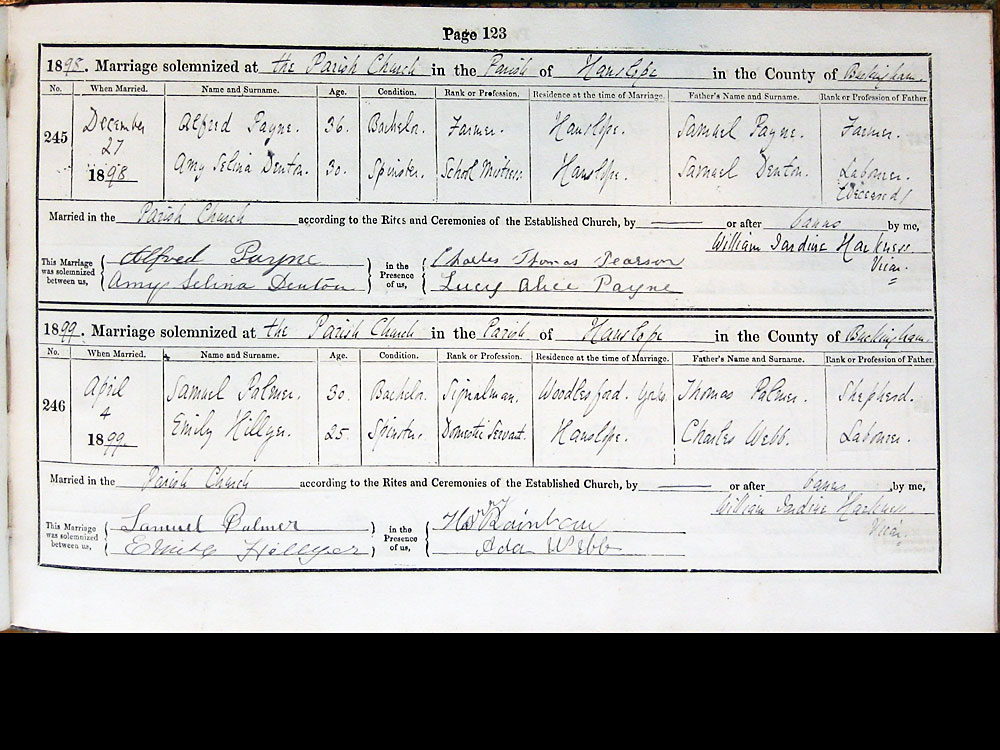 Page 123
1898. Marriage solemnized at the Parish Church in the Parish of Hanslope in the County of Buckingham.
No. When Married. Name and Surname. Age. Condition. Rank or Profession. Residence at the time of Marriage. Father's Name and Surname. Rank or Profession of Father
245 December 27 1898. Alfred Payne. 36. Bachelor. Farmer. Hanslope. Samuel Payne. Farmer.
Amy Selina Denton. 30. Spinster. School Mistress. Hanslope. Samuel Denton. Labourer. (Deceased)
Married in the Parish Church according to the Rites and Ceremonies of the Established Church, by or after banns by me,
William Jardine Harkness. Vicar.
This Marriage was solemnized between us, Alfred Payne in the Presence of us, Charles Thomas Pearson
Amy Selina Denton Lucy Alice Payne
1899. Marriage solemnized at the Parish Church in the Parish of Hanslope in the County of Buckingham.
No. When Married. Name and Surname. Age. Condition. Rank or Profession. Residence at the time of Marriage. Father's Name and Surname. Rank or Profession of Father.
246 April 4 1899. Samuel Palmer. 30. Bachelor. Signalman. Woodlesford. Yorks. Thomas Palmer. Shepherd.
Emily Hillyer. 25. Spinster. Domestic Servant. Hanslope. Charles Webb. Labourer.
Married in the Parish Church according to the Rites and Ceremonies of the Established Church, by or after banns by me,
William Jardine Harkness Vicar.
This Marriage was solemnized between us, Samuel Palmer in the Presence of us, Rainbow
Hillyer Ada Webb